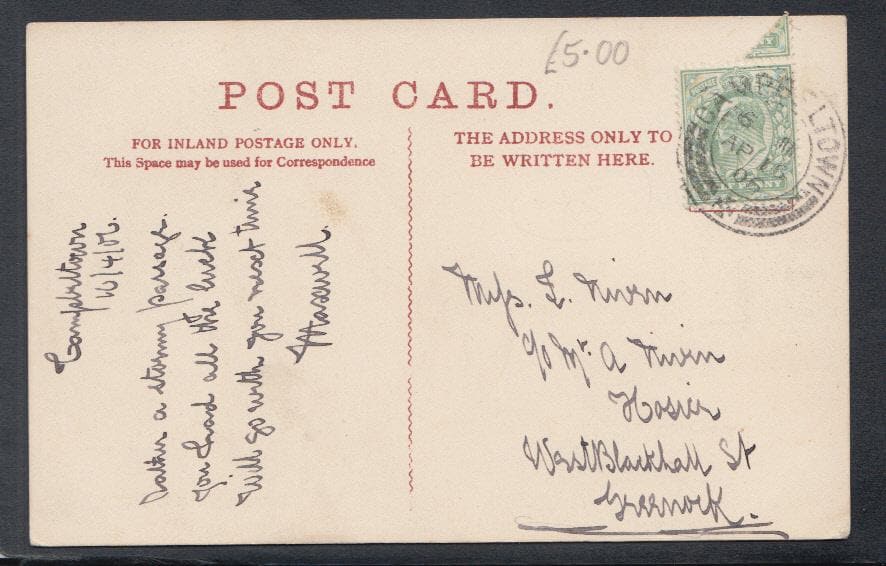 £5.00
POST CARD.
FOR INLAND POSTAGE ONLY.
This Space may be used for Correspondence
THE ADDRESS ONLY TO
BE WRITTEN HERE.
CAMPBELTOWN
AP 16
06
Campbeltown
16/4/06.
Rather a stormy passage.
You had all the luck
Will go with you next time
Maxwell.
Miss. L. Niven
c/o Mr. A Niven
Hosier
West Blackhall St
Greenock.